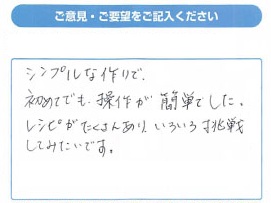 ご意見・ご要望をご記入ください
シンプルな作りで、
初めてでも、操作が簡単でした。
レシピがたくさんあり、いろいろ挑戦
してみたいです。